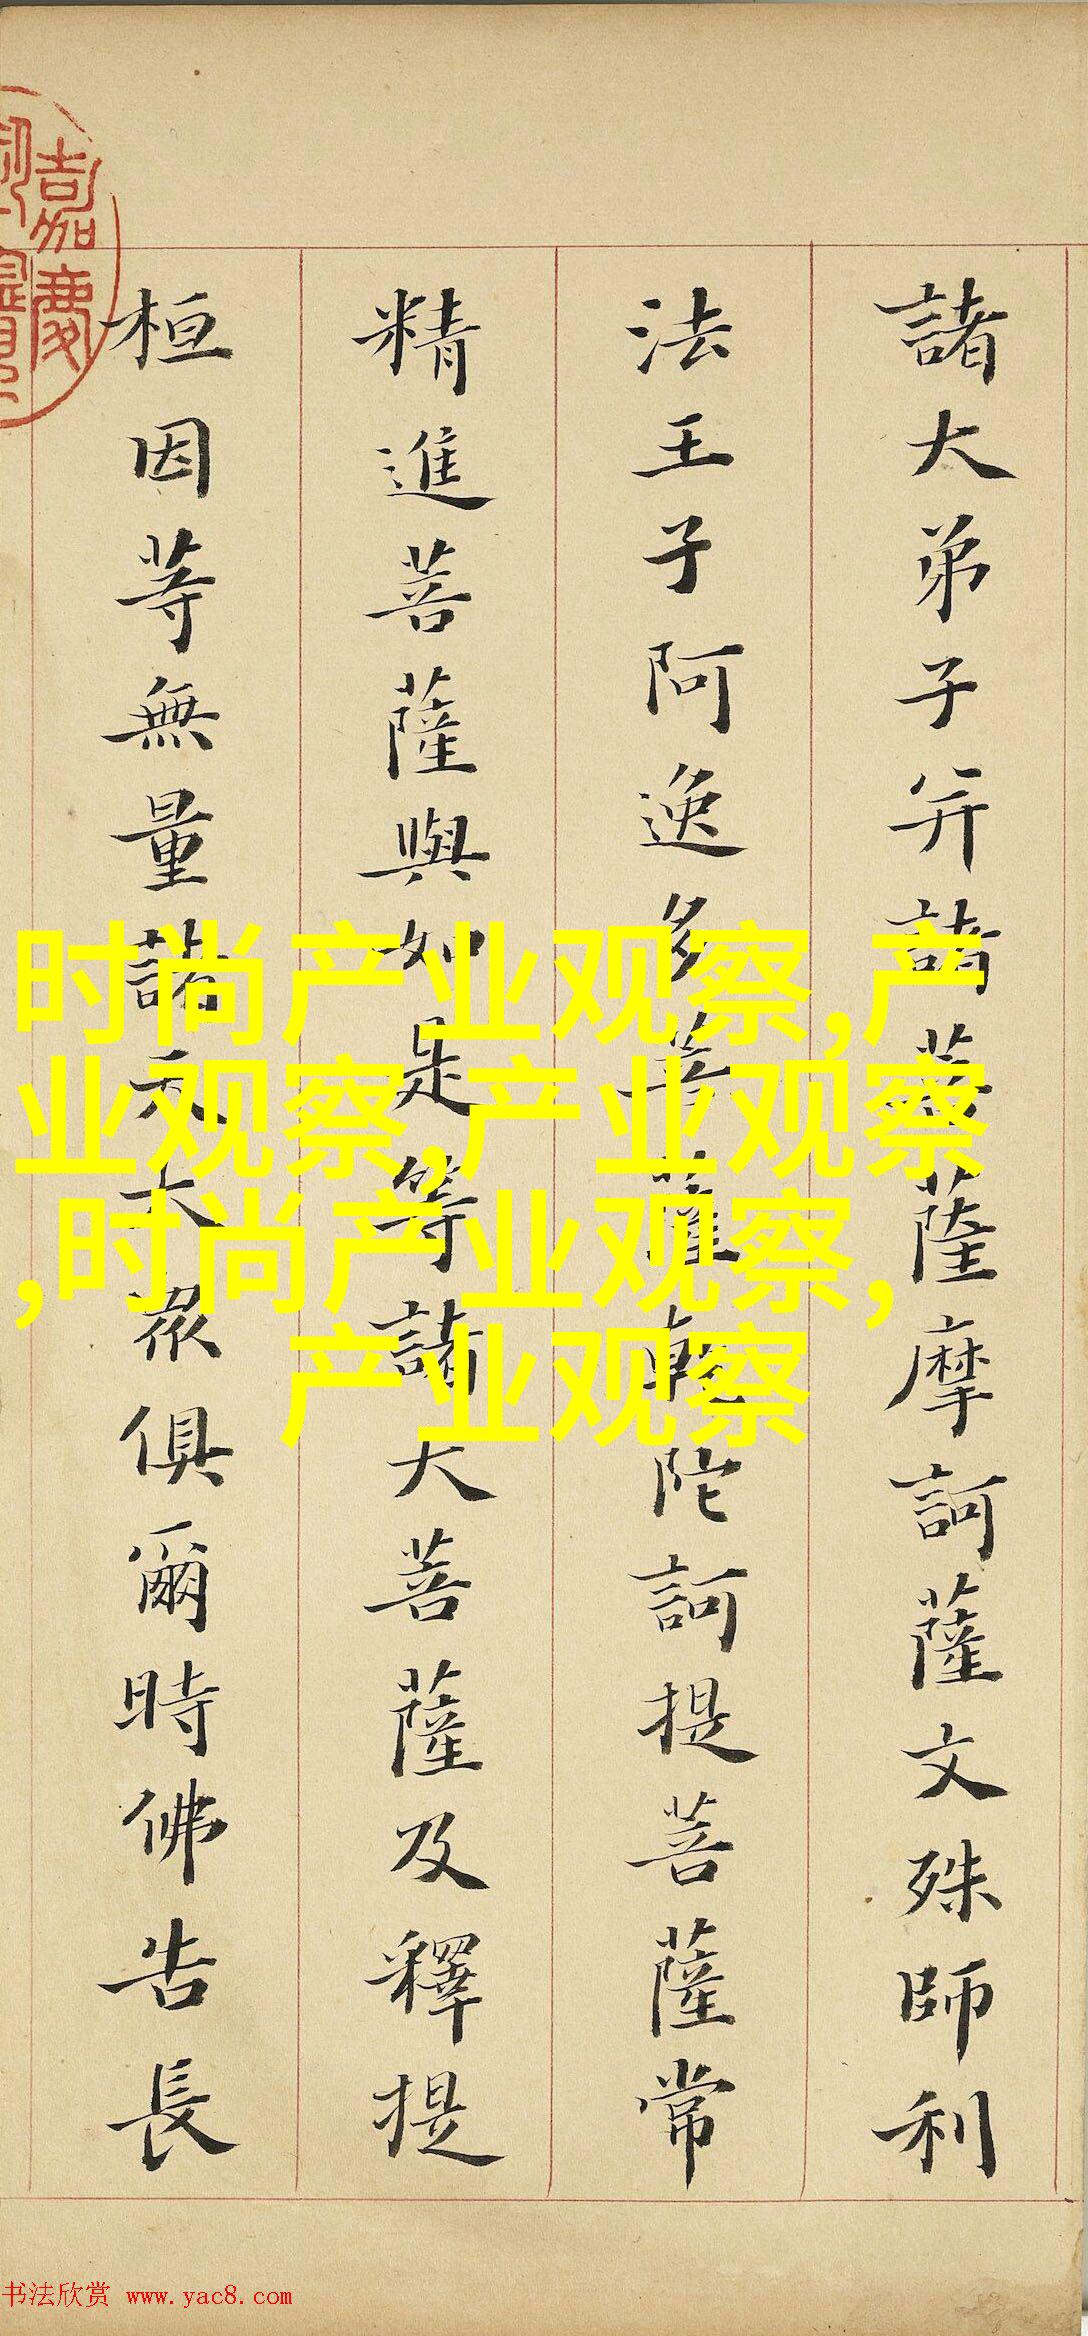 諸大弟子并諸菩薩摩訶薩文殊師利
法王子阿逸多菩薩乾陀訶提菩薩常
精進菩薩與如是等諸大菩薩及釋提
桓因等無量諸天大眾俱爾時佛告長
嘉慶
时尚产业观察,产
业观察,产业观察
,时尚产业观察,
产业观察
书法欣赏 www.yac8.com